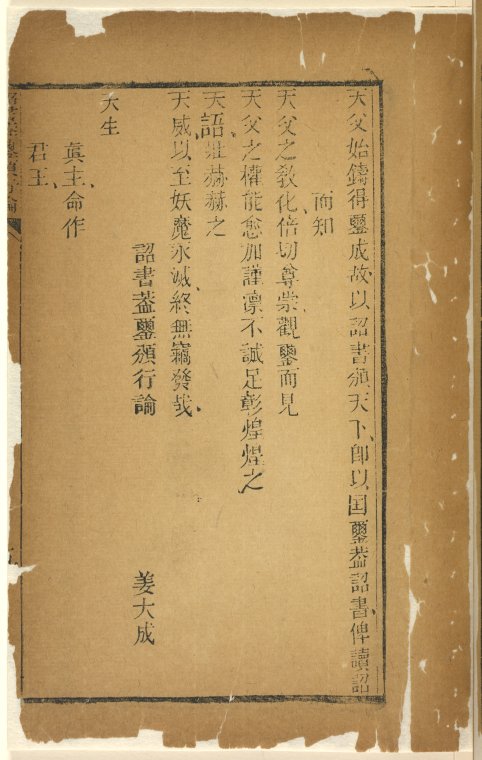 天父始鑄得璽成故以詔書頒天下、即以国璽葢詔書、俾讀詔
而知
天父之敎化、倍切尊崇、觀璽而見
天父之權能愈加謹凛不誠足彰煌煌之
天語、壯赫赫之
天威以至妖魔永滅、終無竊發哉、
詔書葢璽頒行論
姜大成
天生
眞主、命作
君王、
詔書葢璽頒行論